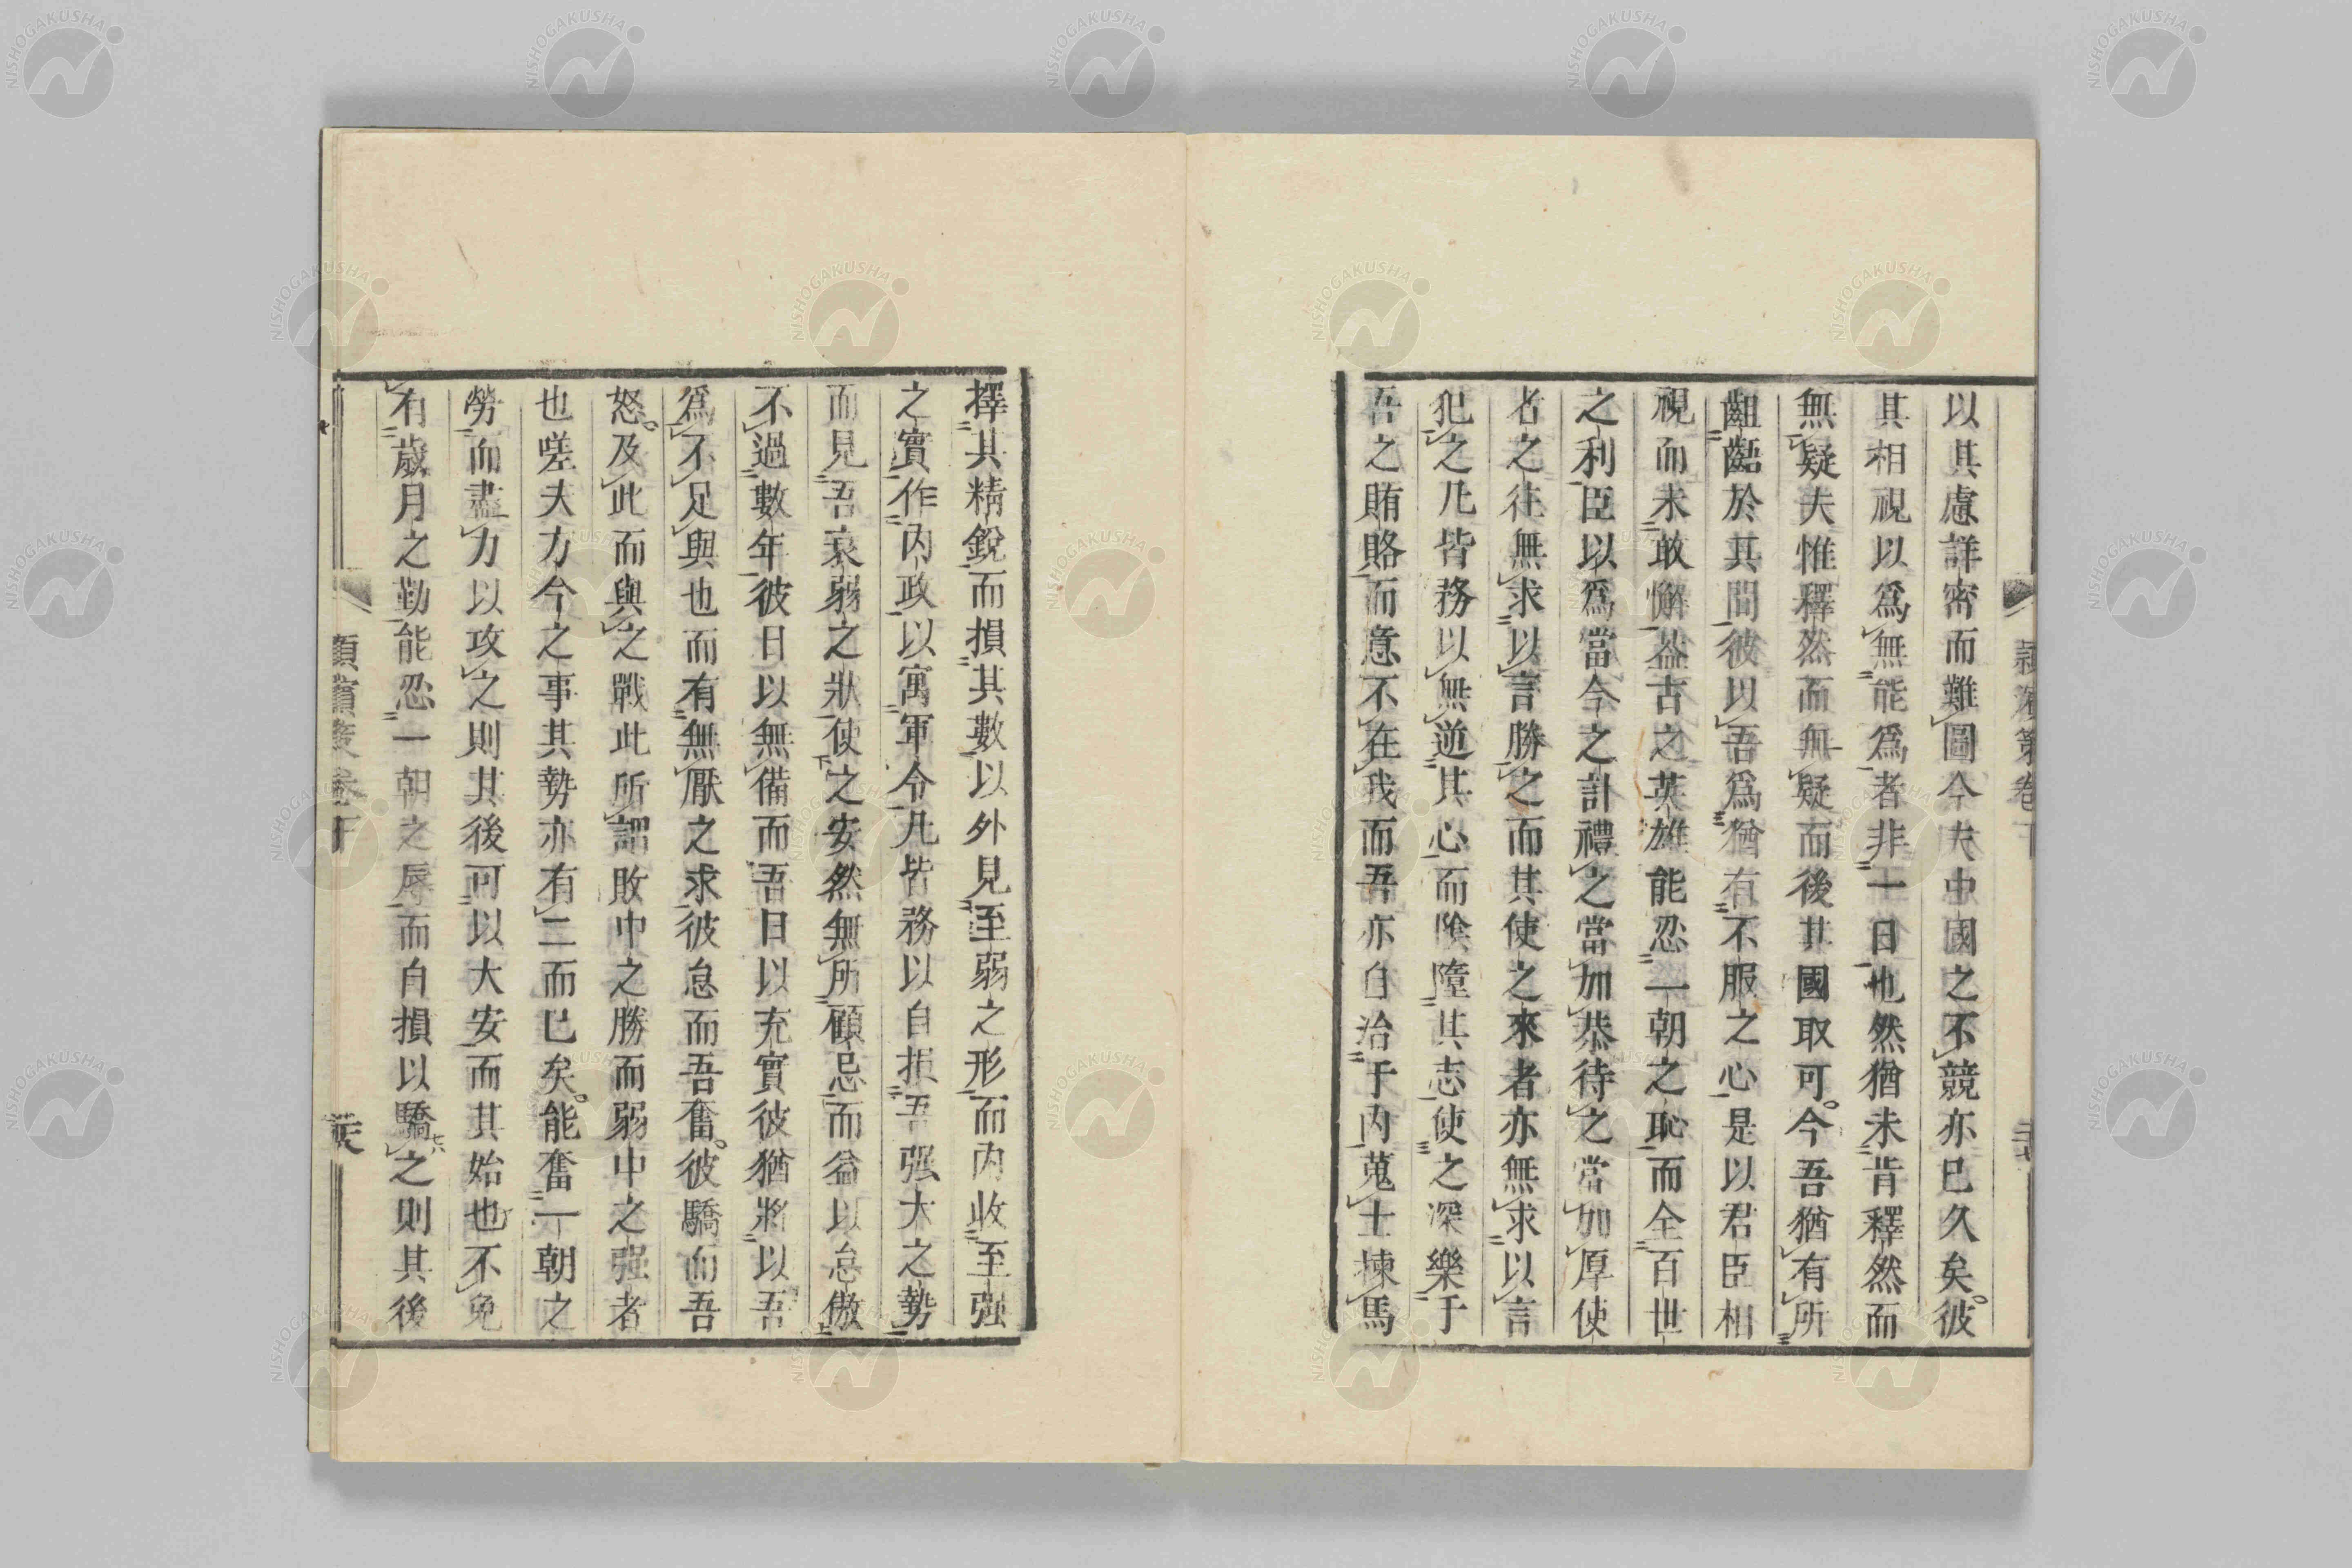 以其慮詳密而難圖今夫中國之不競亦已久矣。彼
其相視以爲無能爲者非一日也然猶未肯釋然而
無疑夫惟釋然而無疑而後其國取可。今吾猶有所
齟齬於其間彼以吾爲猶有不服之心是以君臣相
視而未敢懈益古之英雄能忍一朝之恥而全百世
之利臣以爲當今之計禮之當加恭待之當加厚使
者之往無求以言勝之而其使之來者亦無求以言
犯之凡皆務以無逆其心而陰隳其志使之深樂于
吾之賄賂而意不在我而吾亦自治于內蒐士揀馬
擇其精銳而損其數以外見至弱之形而內收至强
之實作內政以寓軍令凡皆務以自損吾强大之勢
而見吾衰弱之狀使之安然無所顧忌而益以怠傲
不過數年彼日以無備而吾日以充實彼猶將以吾
爲不足與也而有無厭之求彼怠而吾奮。彼驕而吾
怒。及此而與之戰此所謂敗中之勝而弱中之强者
也嗟夫方今之事其勢亦有二而已矣。能奮一朝之
勞而盡力以攻之則其後可以大安而其始也不免
有歲月之勤能忍一朝之辱而自損以驕之則其後
潁濱策卷下